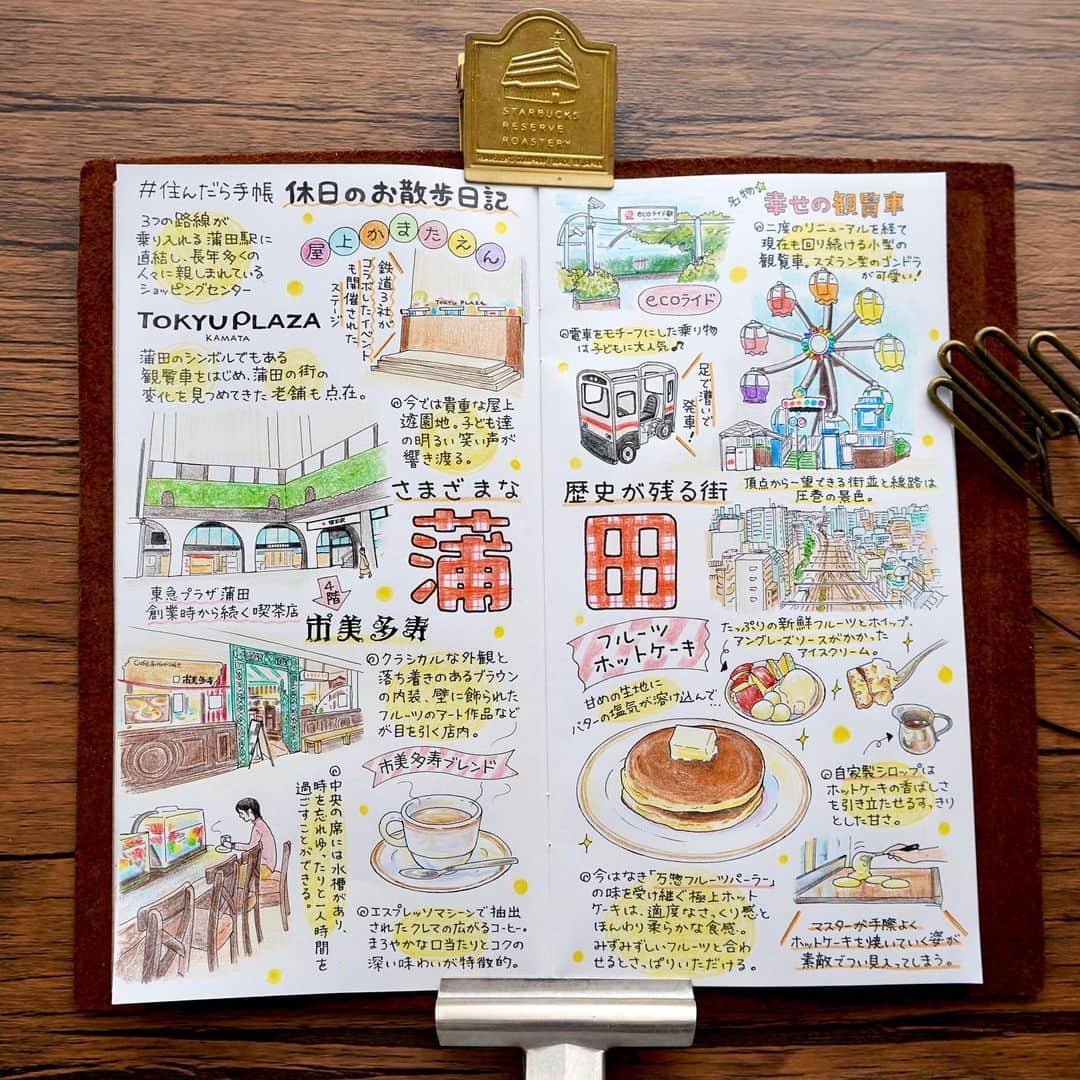 STARBUCKS
RESERVE
ROASTERY
#住んだら手帳 休日のお散歩日記
3つの路線が
乗り入れる蒲田駅に
直結し、長年多くの
人々に親しまれている
ショッピングセンター
TOKYU PLAZA
KAMATA
蒲田のシンボルでもある
観覧車をはじめ、蒲田の街の
変化を見つめてきた老舗も点在。
屋上かまたえん
鉄道3社が
コラボしたイベント
も開催された
ステージ
TOKYU PLAZA
今では貴重な屋上
遊園地。子ども達
の明るい笑い声が
響き渡る。
さまざまな
歴史が残る街
蒲田
東急プラザ蒲田
創業時から続く喫茶店
4階
市美多寿
市美多寿
クラシカルな外観と
落ち着きのあるブラウン
の内装、壁に飾られた
フルーツのアート作品など
が目を引く店内。
市美多寿ブレンド
中央の席には水槽があり、
時を忘れゆったりと一人時間を
過ごすことができる。
エスプレッソマシーンで抽出
されたクレマの広がるコーヒー。
まろやかな口当たりとコクの
深い味わいが特徴的。
ecoライド駅
ecoライド
電車をモチーフにした乗り物
は子どもに大人気♪
足で漕いで
発車!
名物
幸せの観覧車
二度のリニューアルを経て
現在も回り続ける小型の
観覧車。スズラン型のゴンドラ
が可愛い!
頂点から一望できる街並と線路は
圧巻の景色。
フルーツ
ホットケーキ
たっぷりの新鮮フルーツとホイップ、
アングレーズソースがかかった
アイスクリーム。
甘めの生地に
バターの塩気が溶け込んで…
自家製シロップは
ホットケーキの香ばしさ
を引き立たせるすっきり
とした甘さ。
今はなき「万惣フルーツパーラー」
の味を受け継ぐ極上ホット
ケーキは、適度なさっくり感と
ほんわり柔らかな食感。
みずみずしいフルーツと合わ
せるとさっぱりいただける。
マスターが手際よく
ホットケーキを焼いていく姿が
素敵でつい見入ってしまう。